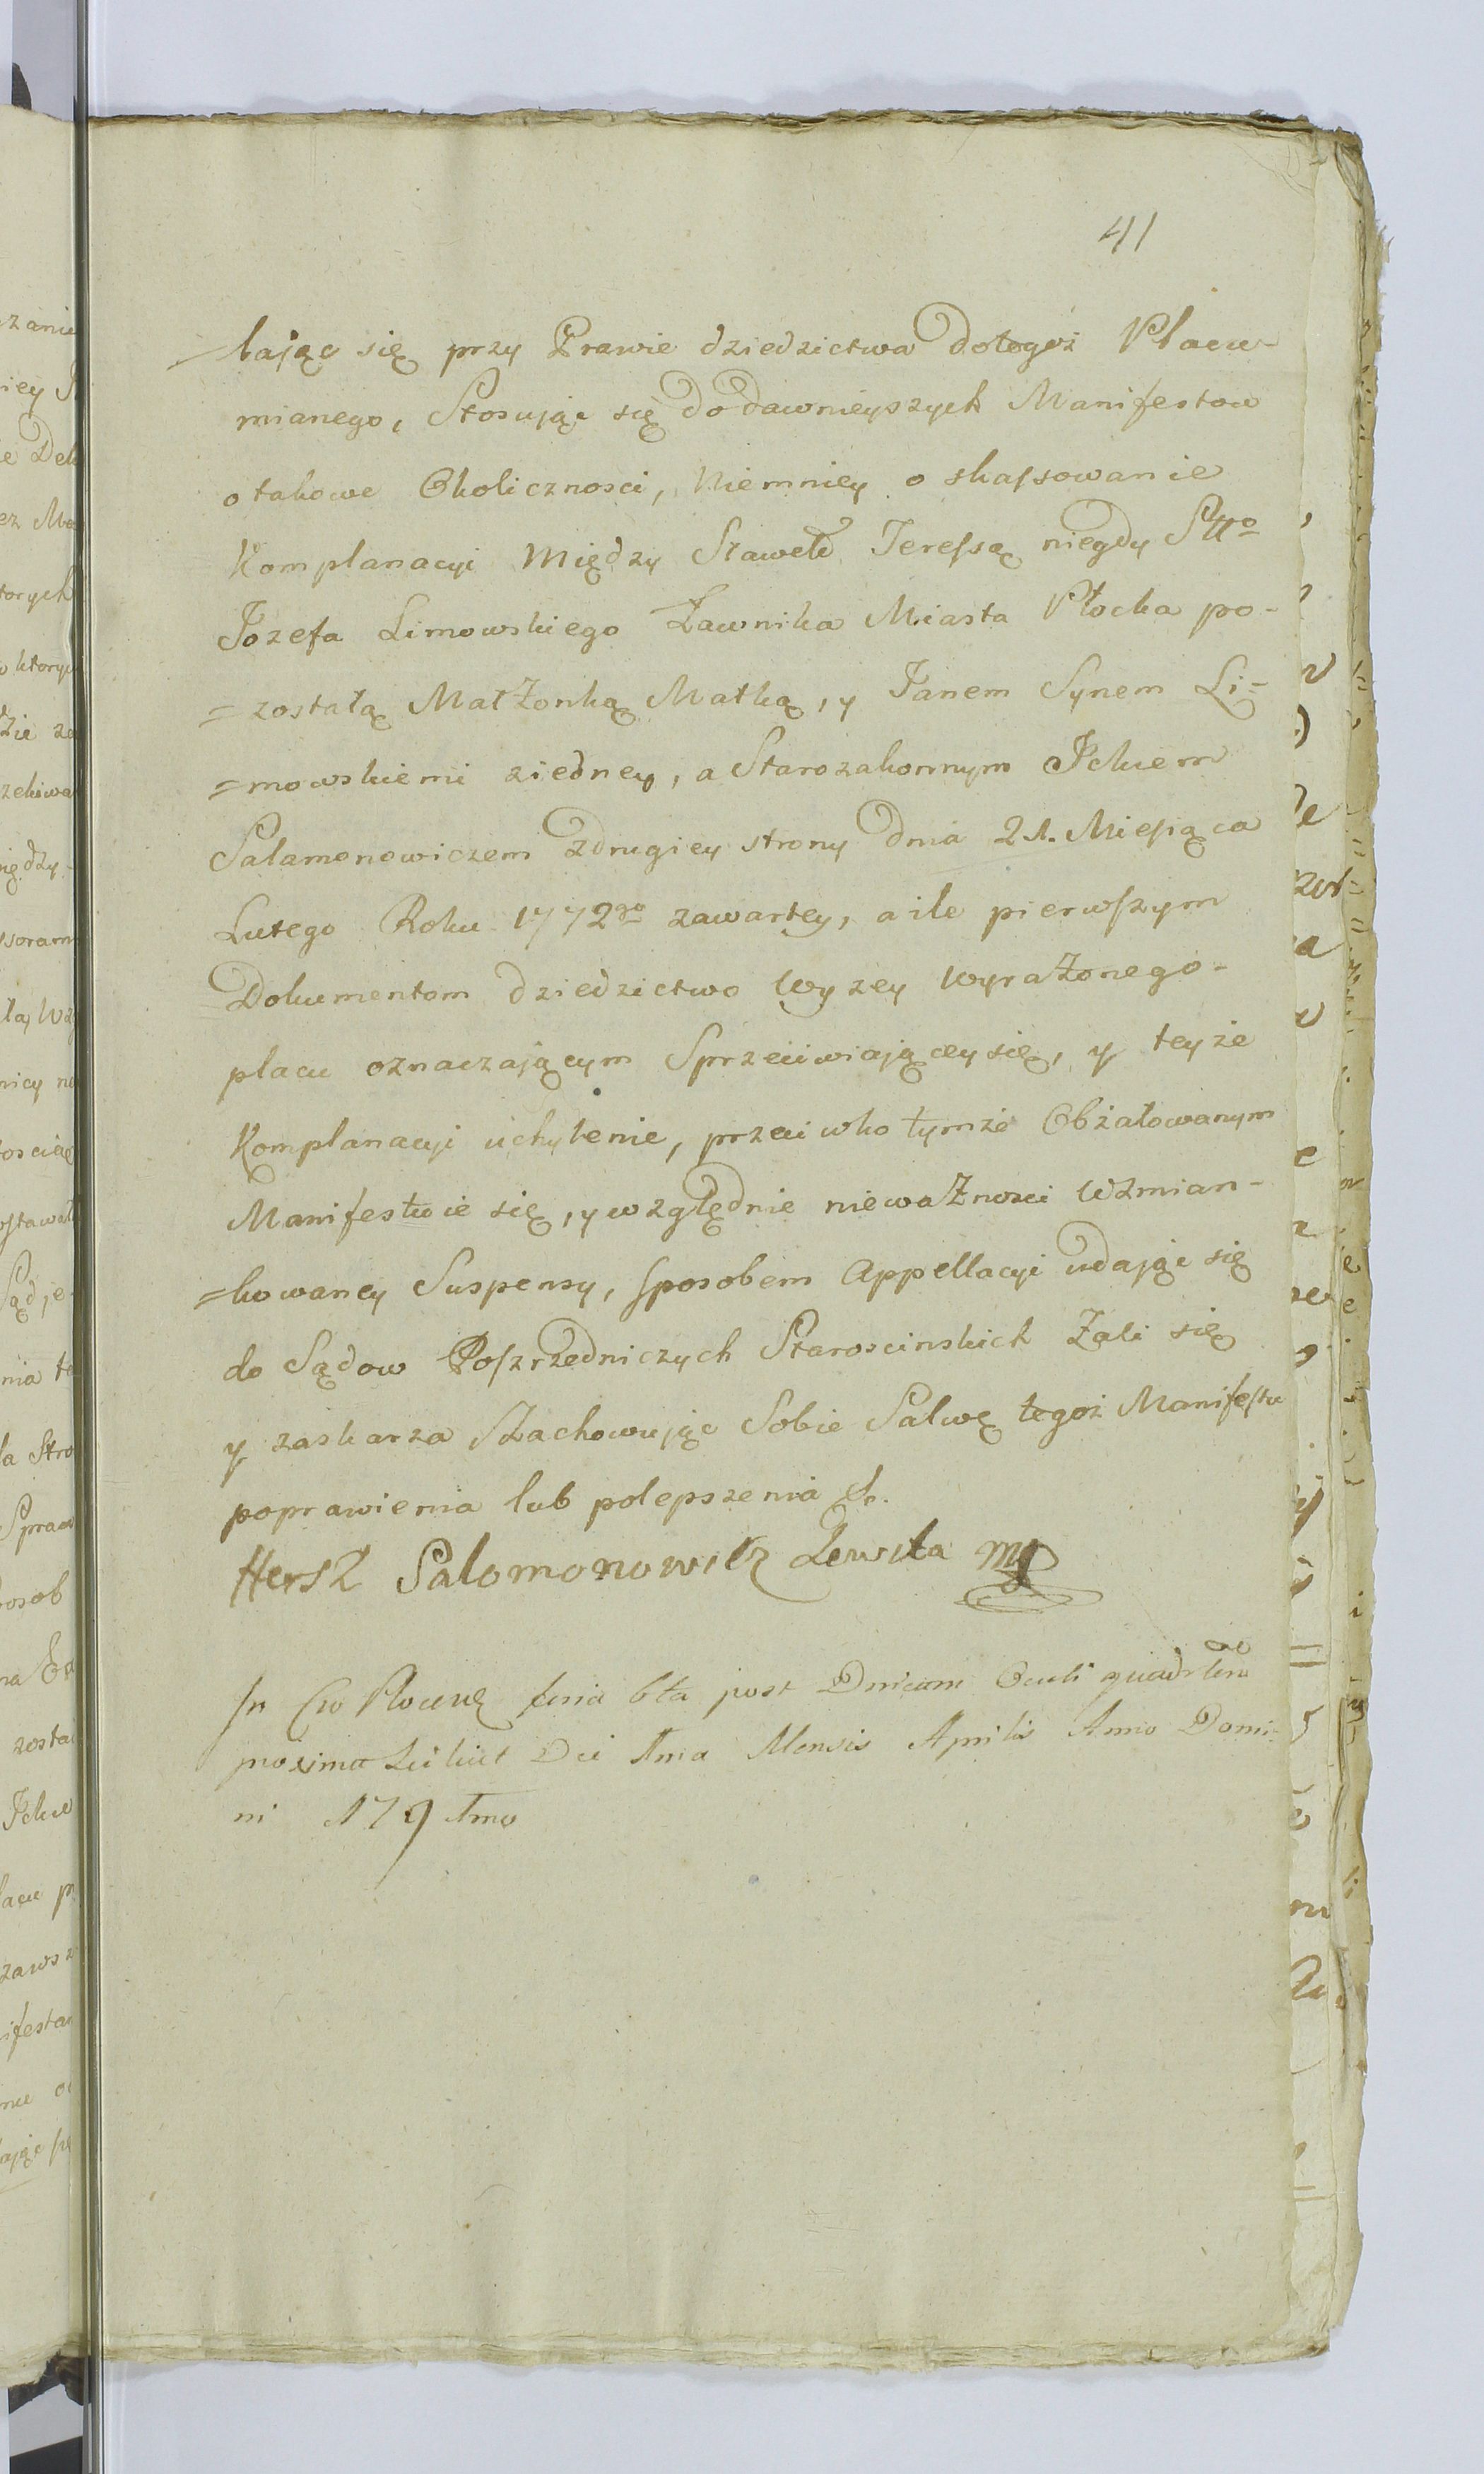 41
lając się przy Prawie dziedzictwa dotegoż Placu
mianego, Stosując się do dawnieyszych Manifestow
otakowe Okolicznosci, Niemniey o skassowanie
Komplanacyi Między Sławetd Teressą niegdy Stto
Jozefa Limowskiego Ławnika Miasta Płocka po-
=zostałą Małżonką Matką, y Janem Synem Li=
=mowskiemi ziedney, a Starozakonnym Ickiem
Salamonowiczem zdrugiey strony dnia 21. Miesiąca
Lutego Roku 1772go zawartey, a ile pierwszym
Dokumentom dziedzictwo Wyzey Wyrażonego-
placu oznaczaiącym Sprzeciwiaiącey się, y teyże
Komplanacyi uchylenie, przeciwko tymże Obżałowanym
Manifestuie się, y względnie nieważnosci Wzmian-
=kowaney Suspensy, sposobem Appellacyi udając się
do Sądow Poszrzedniczych Staroscinskich Żali się
y zaskarza Szachowując Sobie Salwę tegoż Manifestu
poprawienia lub polepszenia &c.
Hersz Salomonowicz Lewita mp
In Cro Plocen feria 6ta post Dnicam Oculi quadrlem
proxima scilicet Die 1ma Mensis Aprilis Anno Domi-
ni 179 1mo